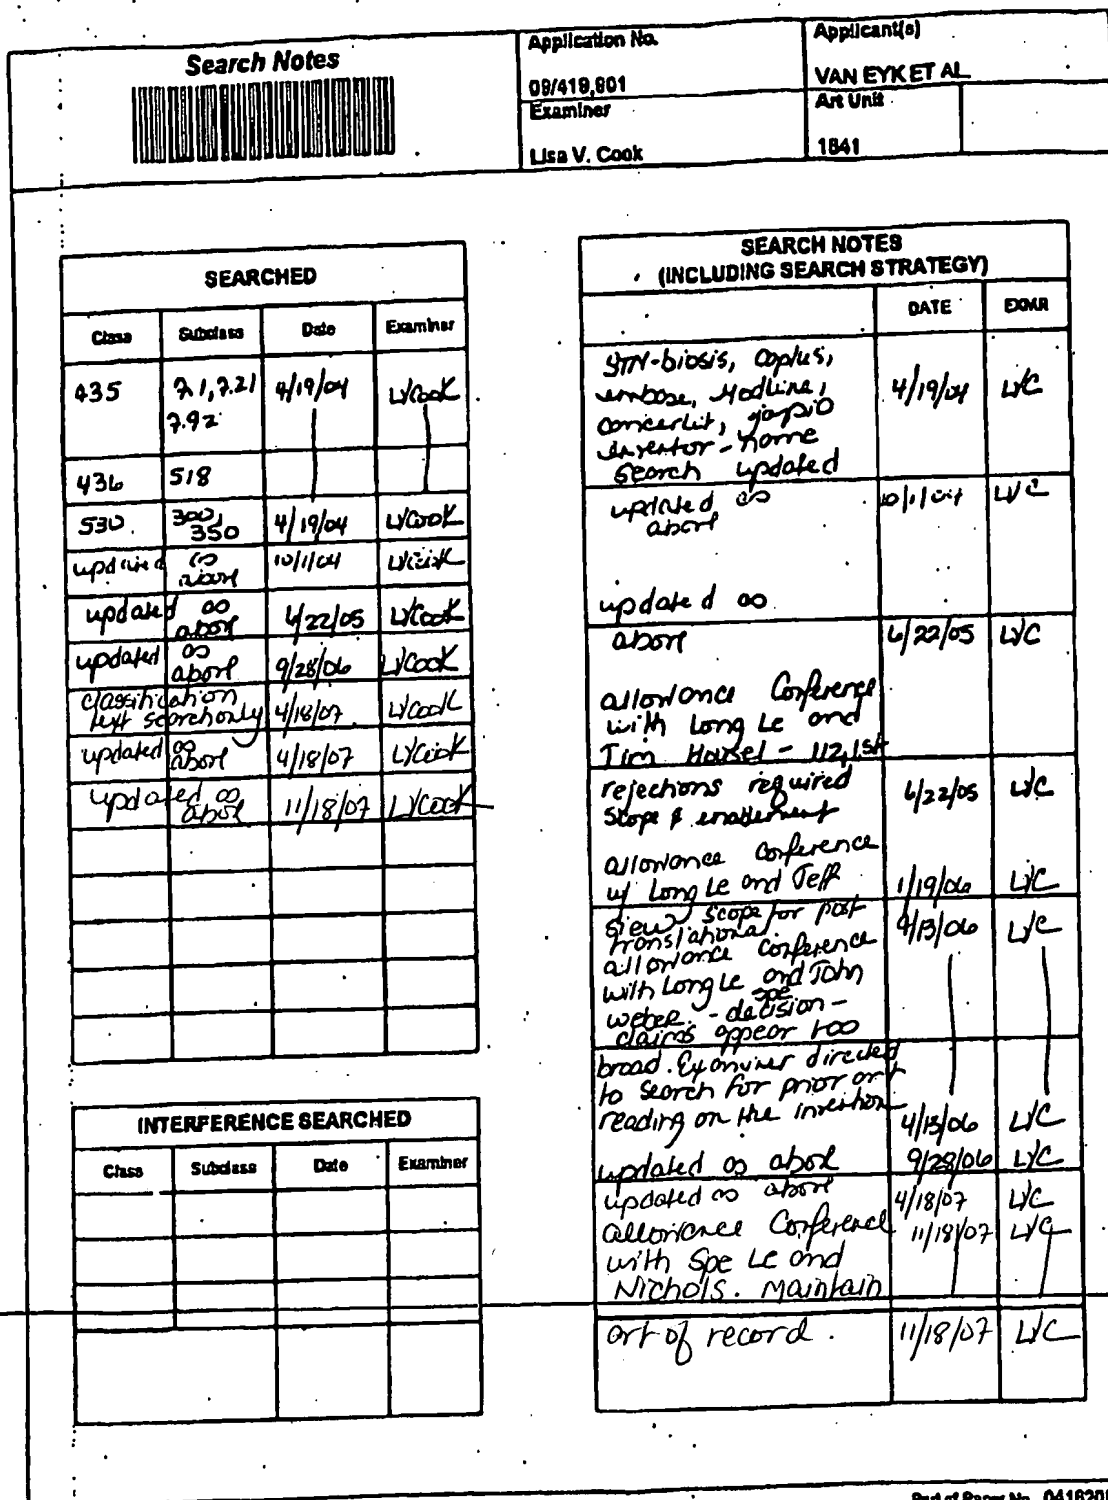 Search Notes
Application No.
09/419,901
Applicant(s)
VAN EYK ET AL
Examiner
Lisa V. Cook
Art Unit
1641
SEARCHED
Class Subclass Date Examiner
435 7.1, 7.21 4/19/04 LVCook
7.92
436 518
530 300, 350 4/19/04 LVCook
updated as above 10/1/04 LVCook
updated as above 6/22/05 LVCook
updated as above 9/28/06 LVCook
classification
text search only 4/18/07 LVCook
updated as above 4/18/07 LVCook
updated as above 11/18/07 LVCook
INTERFERENCE SEARCHED
Class Subclass Date Examiner
SEARCH NOTES
(INCLUDING SEARCH STRATEGY)
DATE EXMR
STN-biosis, caplus,
embase, Medline, 4/19/04 LVC
cancerlit, japio
inventor-name
search updated
updated as 10/1/04 LVC
above
updated as
above 6/22/05 LVC
allowance Conference
with Long Le and
Tim Housel - 112, 1st
rejections required 6/22/05 LVC
scope & enablement
allowance conference
w/ Long Le and Jeff 1/19/06 LVC
Siew scope for post
translational.
allowance conference
with Long Le and John
spe
Weber. - decision -
claims appear too
broad. Examiner directed
to search for prior art
reading on the invention 4/13/06 LVC
updated as above 9/28/06 LVC
updated as above 4/18/07 LVC
allowance Conference 11/18/07 LVC
with Spe Le and
Nichols. maintain
art of record. 11/18/07 LVC
Part of Paper No.